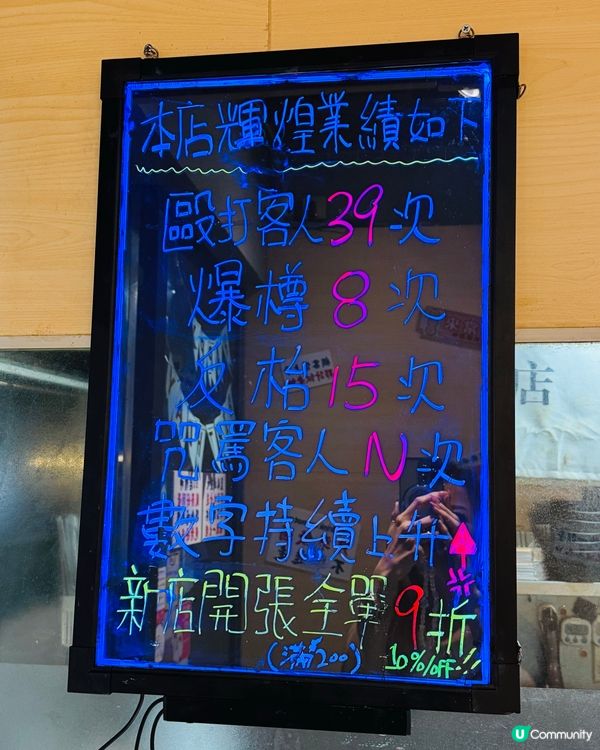 本店輝煌業績如下
毆打客人39次
爆樽8次
反枱15次
咒罵客人N次
數字持續上升
新店開張全單9折
(滿200)
10%off!!
店
U Community